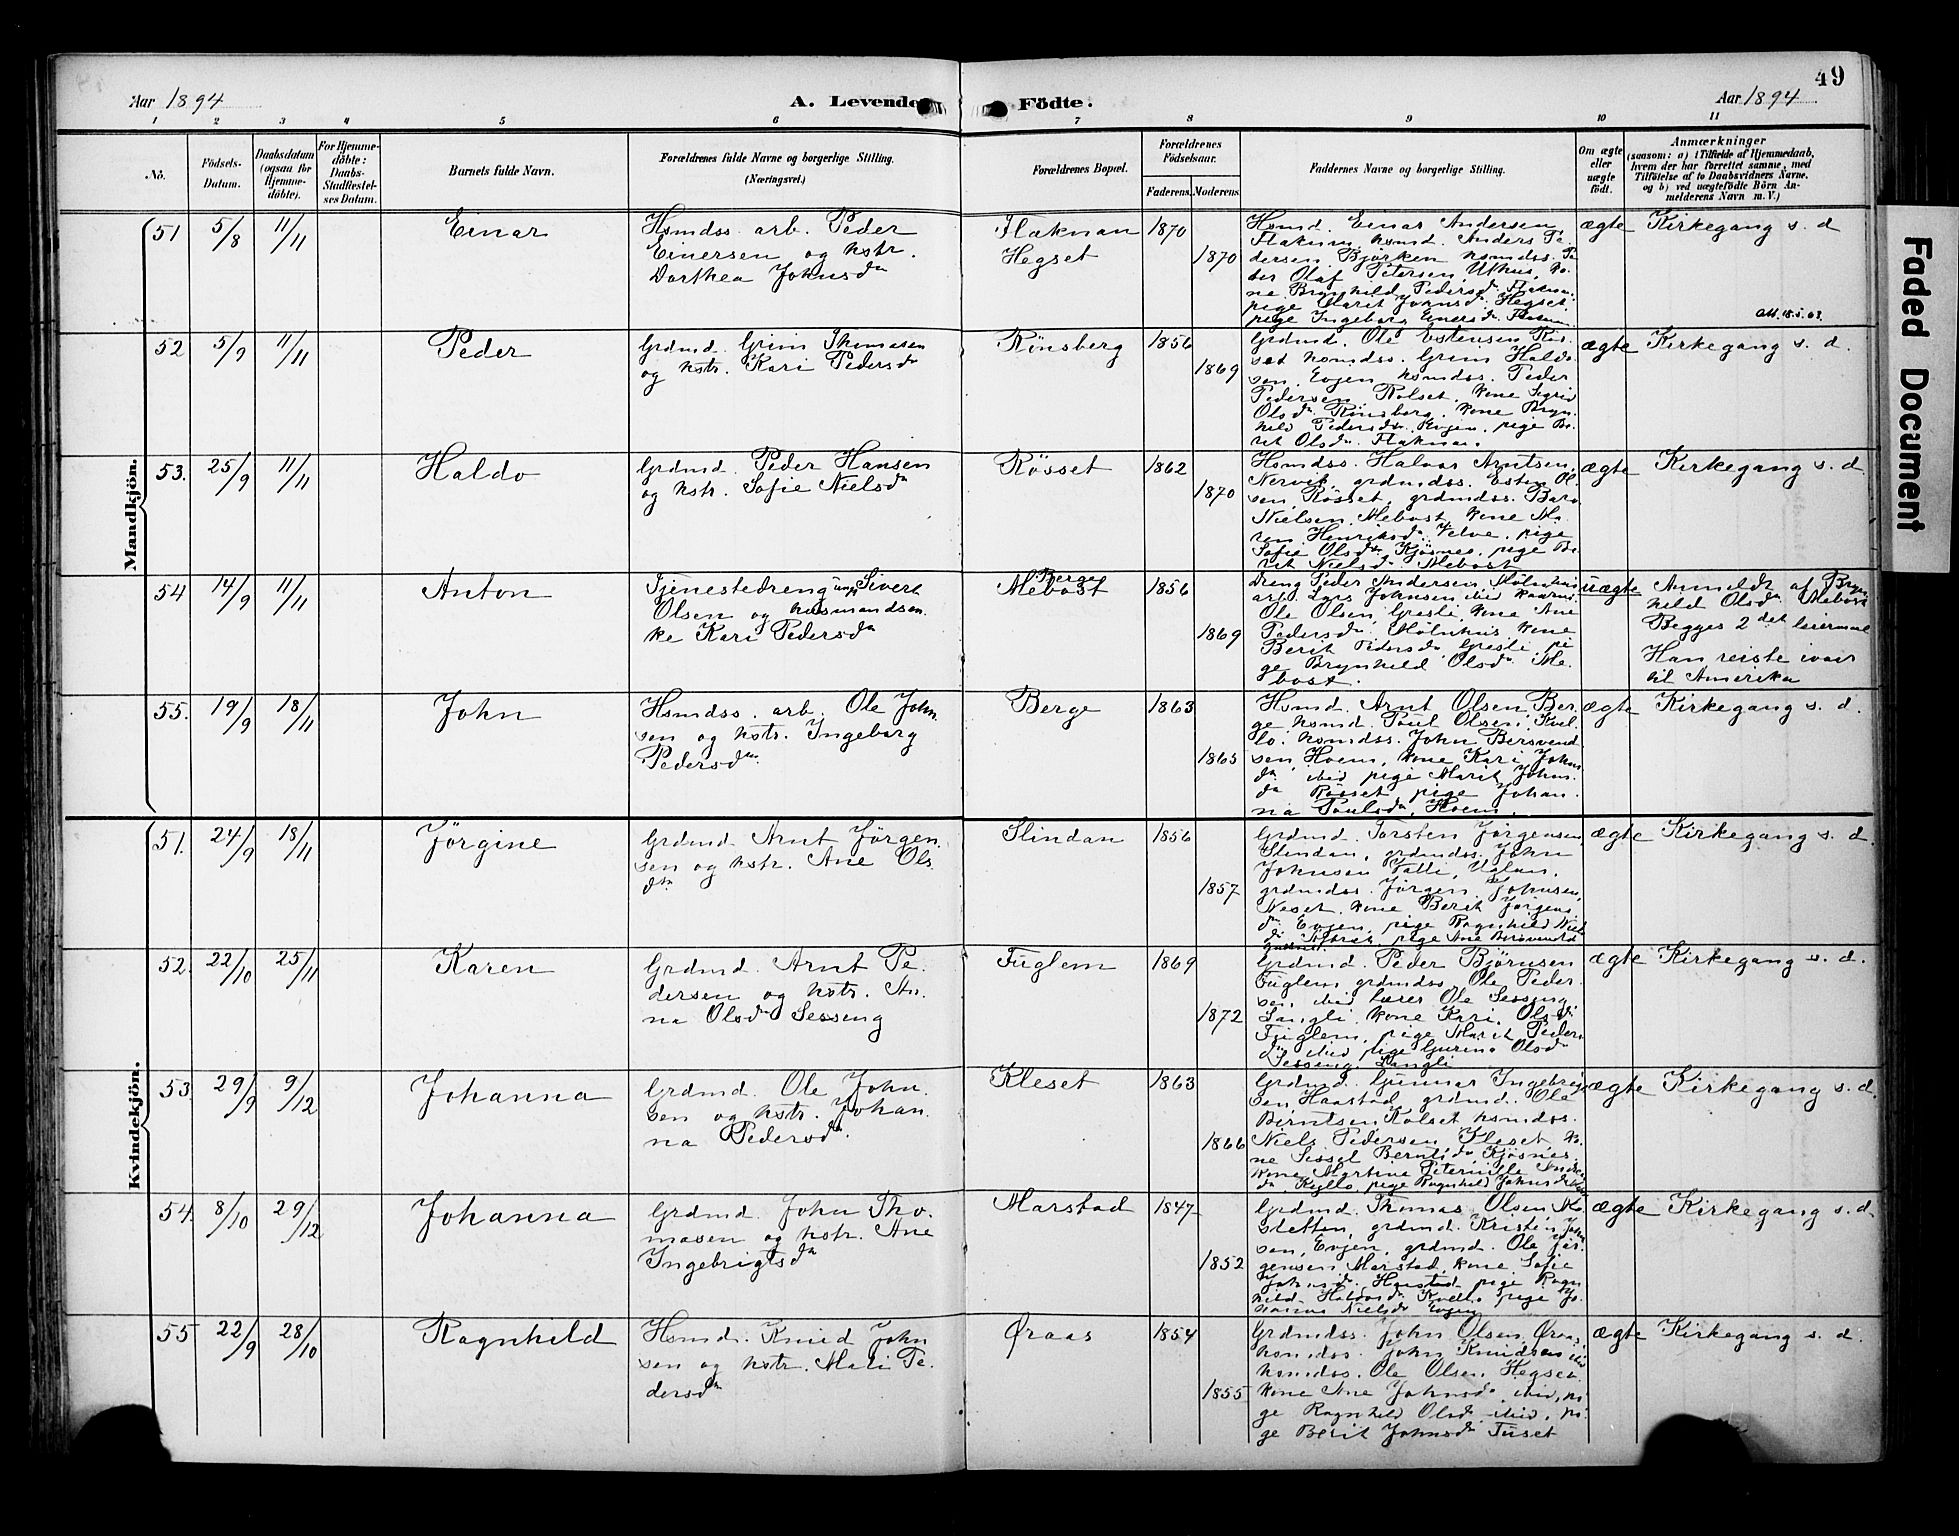 49
Aar 1894
A. Levende Födte.
Aar 1894
1 2 3 4 5 6 7 8 9 10 11
No.
Födsels-
Datum.
Daabsdatum
(ogsaa for
Hjemme-
döbte).
For Hjemme-
döbte:
Daabs-
Stadfæstel-
ses Datum.
Barnets fulde Navn.
Forældrenes fulde Navne og borgerlige Stilling.
(Næringsvei.)
Forældrenes Bopæl.
Forældrenes
Födselsaar.
Faderens. Moderens.
Faddernes Navne og borgerlige Stilling.
Om ægte
eller
uægte
födt.
Anmærkninger
(saasom: a) i Tilfælde af Hjemmedaab,
hvem der har forrettet samme, med
Tilföielse af to Daabsvidners Navne,
og b) ved uægtefödte Börn An-
melderens Navn m. V.)
Mandkjön.
51 5/8 11/11 Einar
Hsmdss. arb. Peder
Einersen og hstr.
Dorthea Johnsda
Flaknan
Hegset
1870
1870
Hsmd. Einar Andersen,
Flaknan, hsmd. Anders Pe-
dersen Bjørken hsmdss. Pe-
der Olaf Petersen Uthus, ko-
ne Brynhild Pedersda Flaknan,
pige Marit Johnsda Hegset,
pige Ingeborg Einersda Flaknan
ægte
Kirkegang s. d
52 5/9 11/11 Peder
Grdmd. Grim Thomasen
og hstr. Kari Pedersda
Rønsberg
1856
1869
Grdmd. Ole Estensen Røs-
set hsmdss. Grim Haldo-
sen, Evjen, hsmdss. Peder
Pedersen Rolset, kone Sigrid
Olsda Rønsberg, kone Bryn-
hild Pedersda Evjen, pige Be-
rit Olsda Flaknan.
ægte
Kirkegang s. d.
53. 25/9 11/11 Haldo
Grdmd. Peder Hansen
og hstr. Sofie Nielsda
Røsset
1862
1870
Hsmdss. Halvor Arntsen,
Nervik, grdmdss. Esten Ol-
sen Røsset, grdmdss. Baro
Nielsen Mebost, kone Ma-
ren Henriksda Velve, pige
Sofie Olsda Kjøsnes, pige Be-
rit Nielsda Mebost
ægte
Kirkegang s. d.
54 14/9 11/11 Anton
Tjenestedreng ungk. Sivert
Olsen og husmandsen-
ke Kari Pedersda
Berge
Mebost
1856
1869
Dreng Peder Andersen Mølnhus
arb. Lars Johnsen ibid kaarmd.
Ole Olsen, Gresli, kone Ane
Pedersda Mølnhus, kone
Berit Pedersda Gresli, pi-
ge Brynhild Olsda Me-
bost.
uægte
Anmeldt af Bryn-
hild Olsda Mebost
Begges 2det leiermaal
Han reiste ivaar
til Amerika
55. 19/9 18/11 John
Hsmdss. arb. Ole John-
sen og hstr. Ingeborg
Pedersda
Berge
1863
1865
Hsmd. Arnt Olsen Ber-
ge hsmd. Poul Olsen, Kvel-
lo. hsmdss. John Bersvend-
sen, Hoem, kone Kari Johns
da ibid pige Marit Johns-
da Røsset, pige Johan-
na Poulsda Hoem.
ægte
Kirkegang s. d.
Kvindekjön.
51. 24/9 18/11 Jørgine
Grdmd. Arnt Jørgen-
sen og hstr. Ane Ols-
da
Slindan
1856
1857
Grdmd. Torsten Jørgensen
Slindan, grdmdss. John
Johnsen Valli, Uglan,
grdmdss. Jørgen Johnsen,
Neset, kone Berit Jørgens-
da Evjen, pige Ragnhild Niels-
ægte
Kirkegang s. d.
52. 22/10 25/11 Karen
Grdmd. Arnt Pe-
dersen og hstr. An-
na Olsda Sesseng
Fuglem
1869
1872
Grdmd. Peder Bjørnsen
Fuglem, grdmdss. Ole Peder-
sen, ibid lærer Ole Sesseng,
Langli, kone Kari Olsda
Fuglem, pige Marit Peders-
da ibid, pige Gurine Olsda
Sesseng, Langli
ægte
Kirkegang s. d.
53. 29/9 9/12 Johanna
Grdmd. Ole John-
sen og hstr. Johan-
na Pedersda.
Kleset
1863
1866
Grdmd. Gunnar Ingebrigt-
sen Haarstad, grdmd. Ole
Berntsen, Rolset, hsmdss.
Niels Pedersen, Flaset, ko-
ne Sissel Berntsda Kjøsnes,
kone Martine Peternille Andre-
da, Kyllo, pige Ragnhild Johnsda
ægte
Kirkegang s. d.
54. 8/10 29/12 Johanna
Grdmd. John Tho-
masen og hstr. Ane
Ingebrigtsda
Marstad
1847
1852
Grdmd. Thomas Olsen Mo-
sletten, grdmd. Kristen John-
sen, Evjen, grdmd. Ole Jør-
gensen Marstad, kone Sofie
Johnsda Harstad, pige Ragn-
hild Haldosda Kvello, pige Jo-
hanna Nielsda Evjen
ægte
Kirkegang s. d.
55 22/9 28/10 Ragnhild
Hsmd. Knud John-
sen og hstr. Mari Pe-
dersda
Øraas
1854
1855
Grdmdss. John Olsen, Øraas,
hsmdss. John Knudsen ibid
hsmdss. Ole Olsen Hegset
kone Ane Johnsda ibid, pi-
ge Ragnhild Olsda ibid, pi-
ge Berit Johnsda Tuset
ægte
Kirkegang s. d.
Faded Document